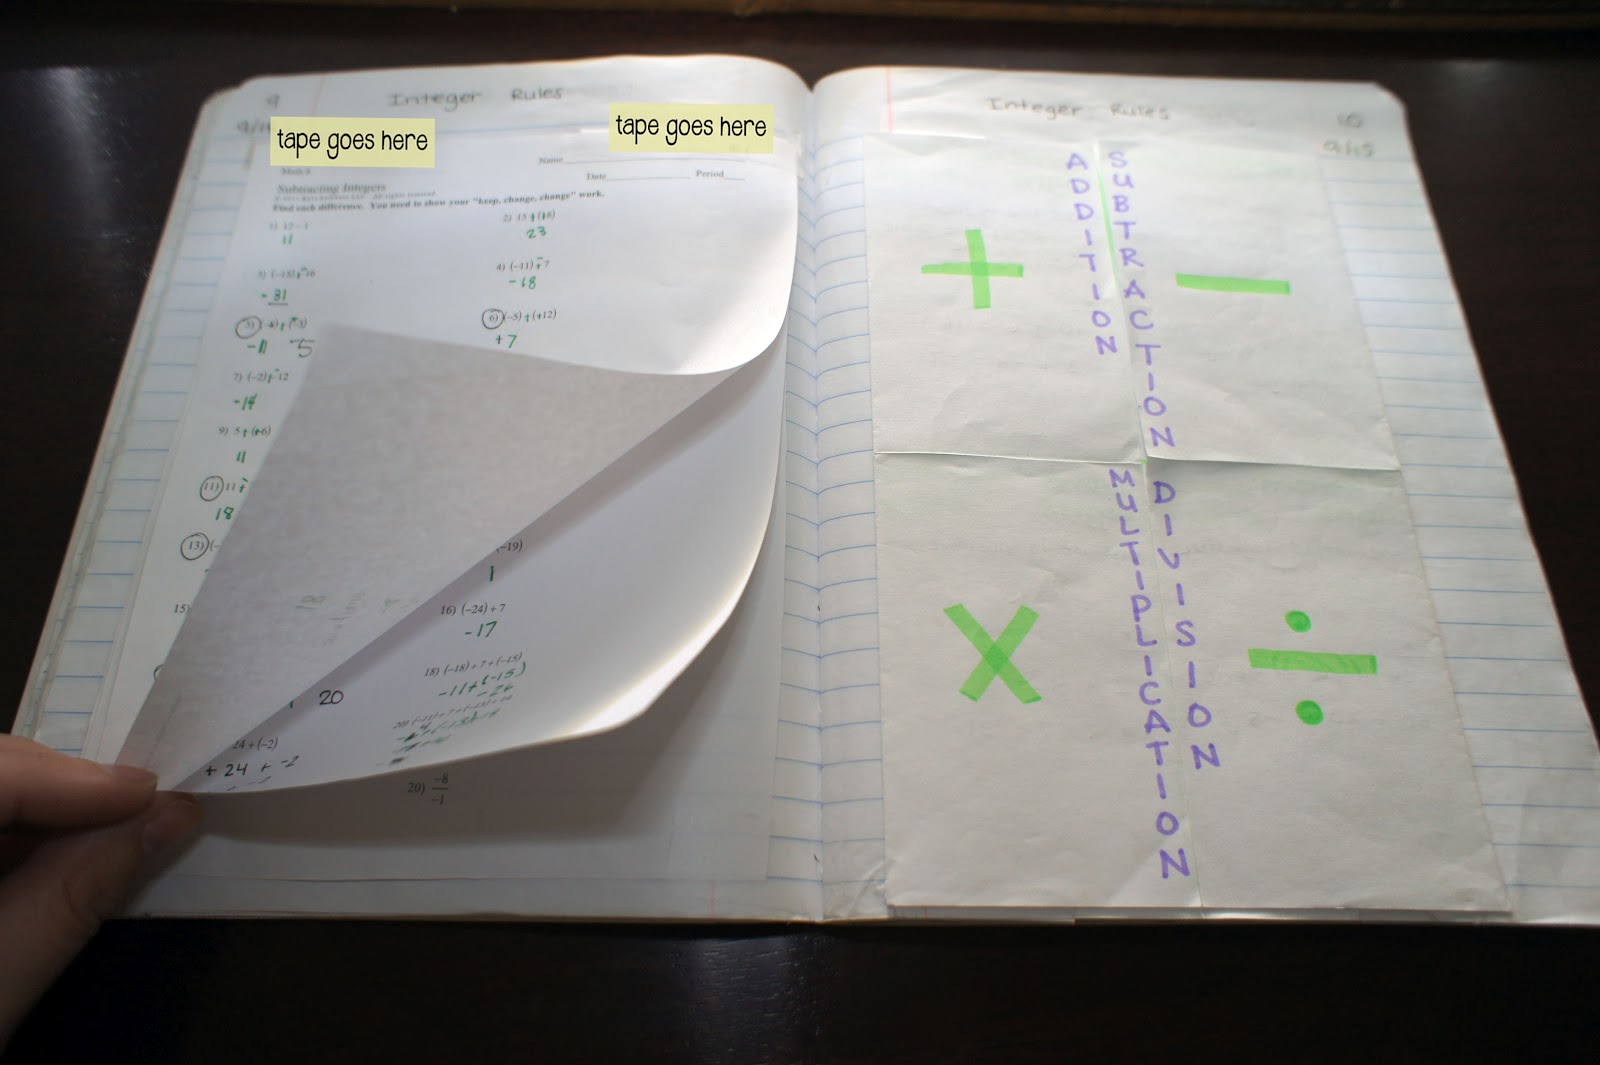 9
Integer Rules
tape goes here
tape goes here
Name
Date Period
Subtracting Integers
Find each difference. You need to show your "keep, change, change" work.
1) 12 - 1
11
2) 15 + (+8)
23
-31
4) (-11) + -7
-18
5)
-11 5
6) (-5) + (+12)
+7
7) (-2) + -12
-14
9) 5 + (+6)
11
11) 11 +
18
13) (-
-19)
1
15)
16) (-24) + 7
-17
18) (-18) + 7 + (-15)
-11 + (-15)
20
24 + (-2)
+ 24 + -2
20) -8
-1
Integer Rules
10
9/15
ADDITION
SUBTRACTION
+
−
MULTIPLICATION
DIVISION
×
÷